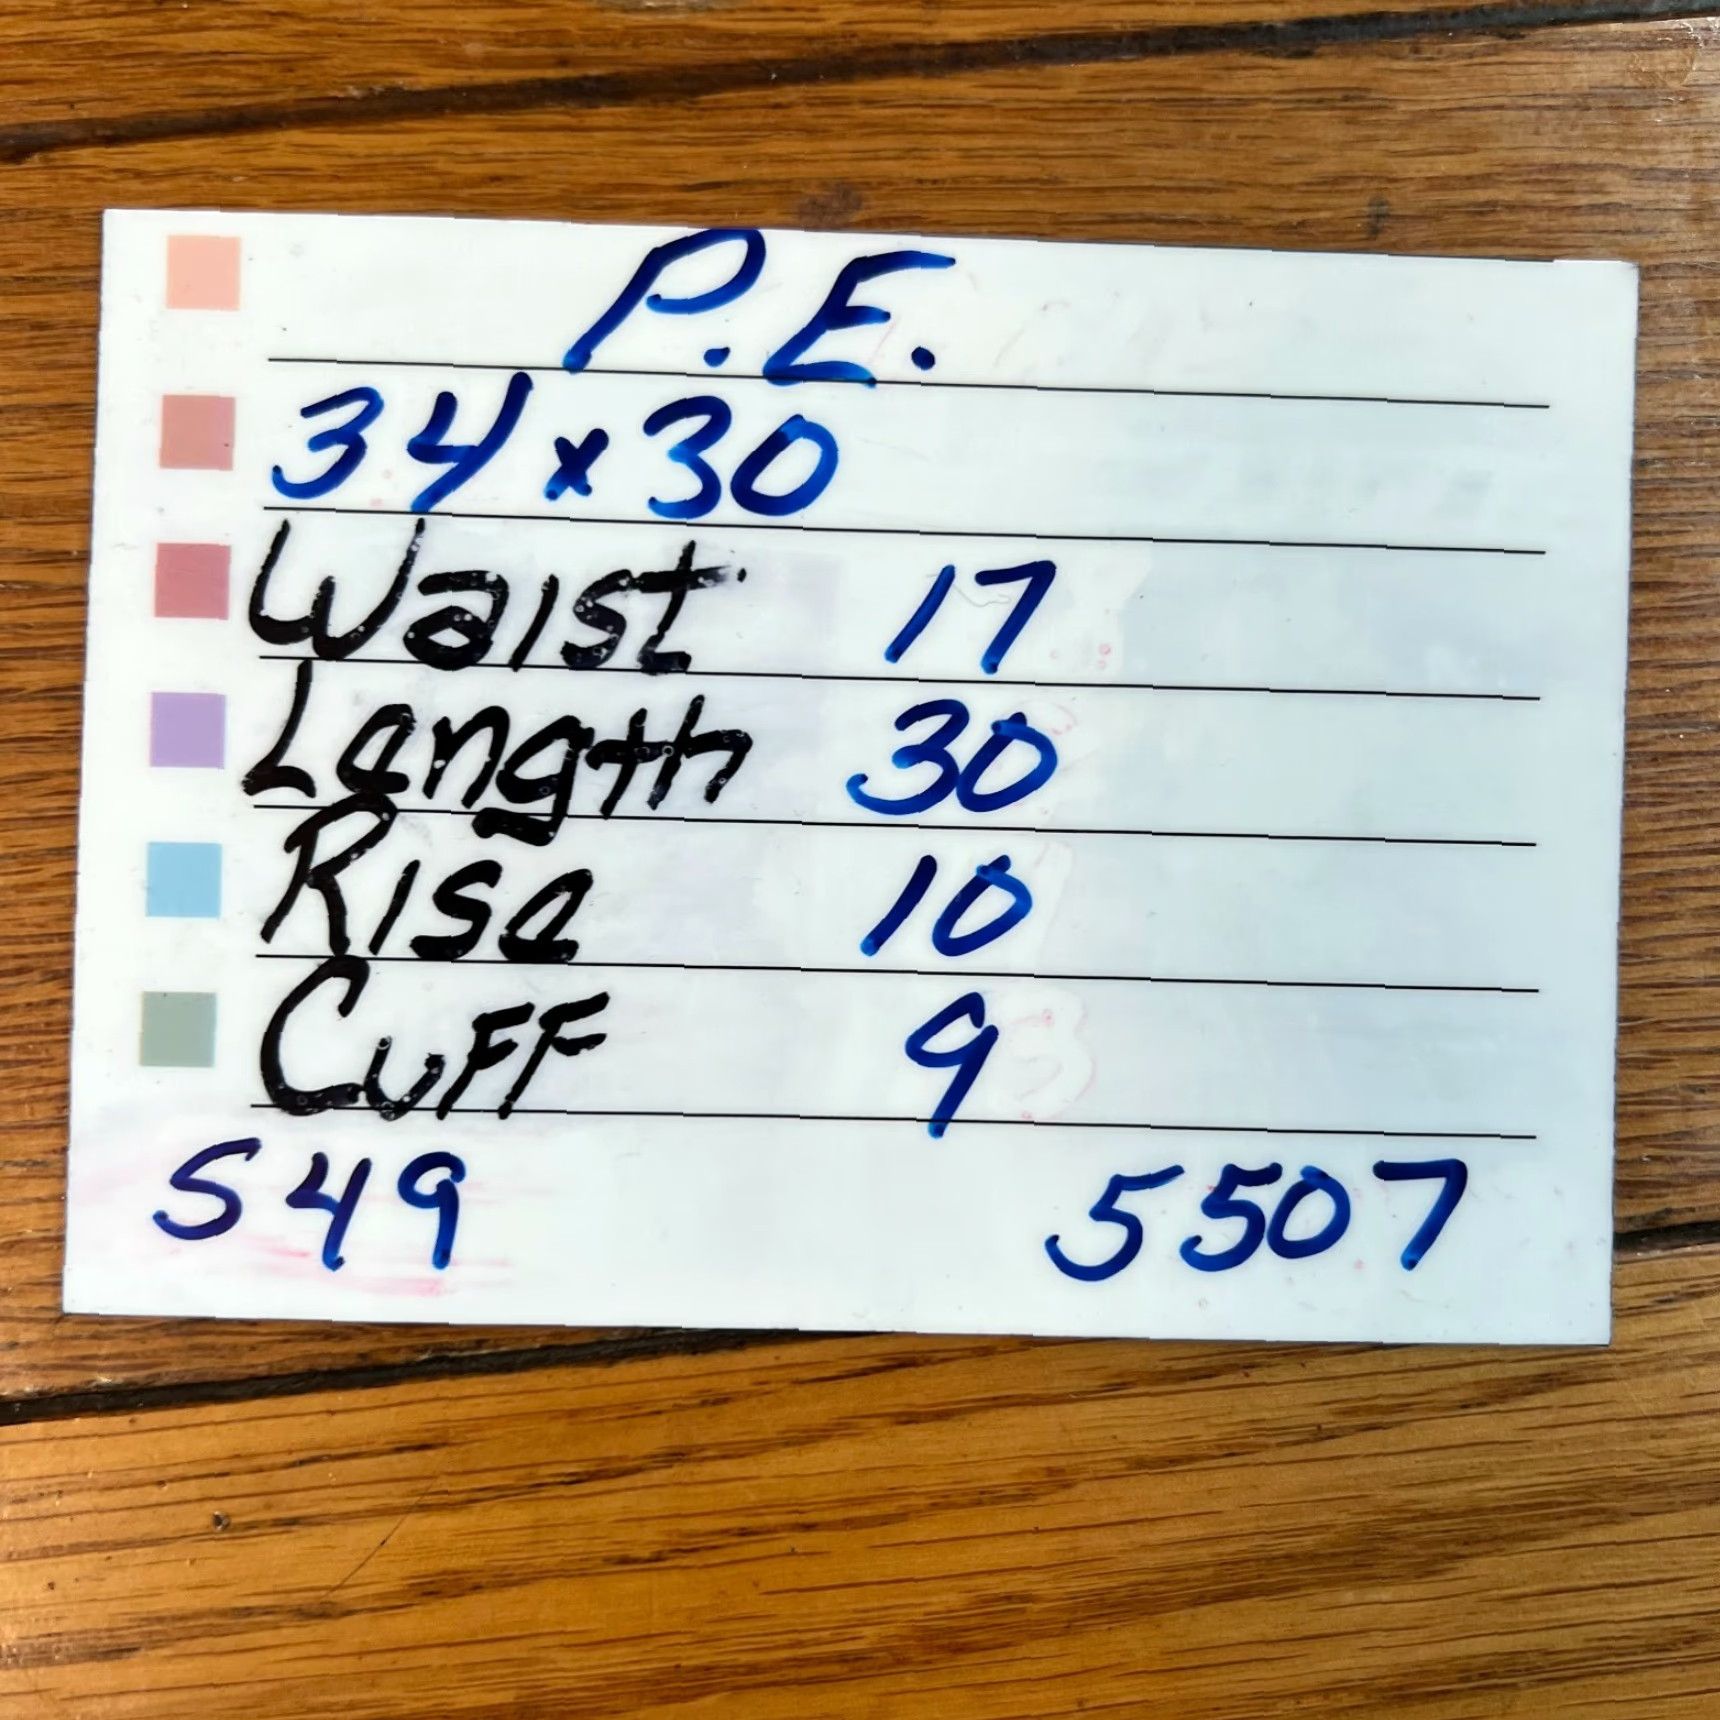 P.E.
34 x 30
Waist 17
Length 30
Rise 10
Cuff 9
S49 5507